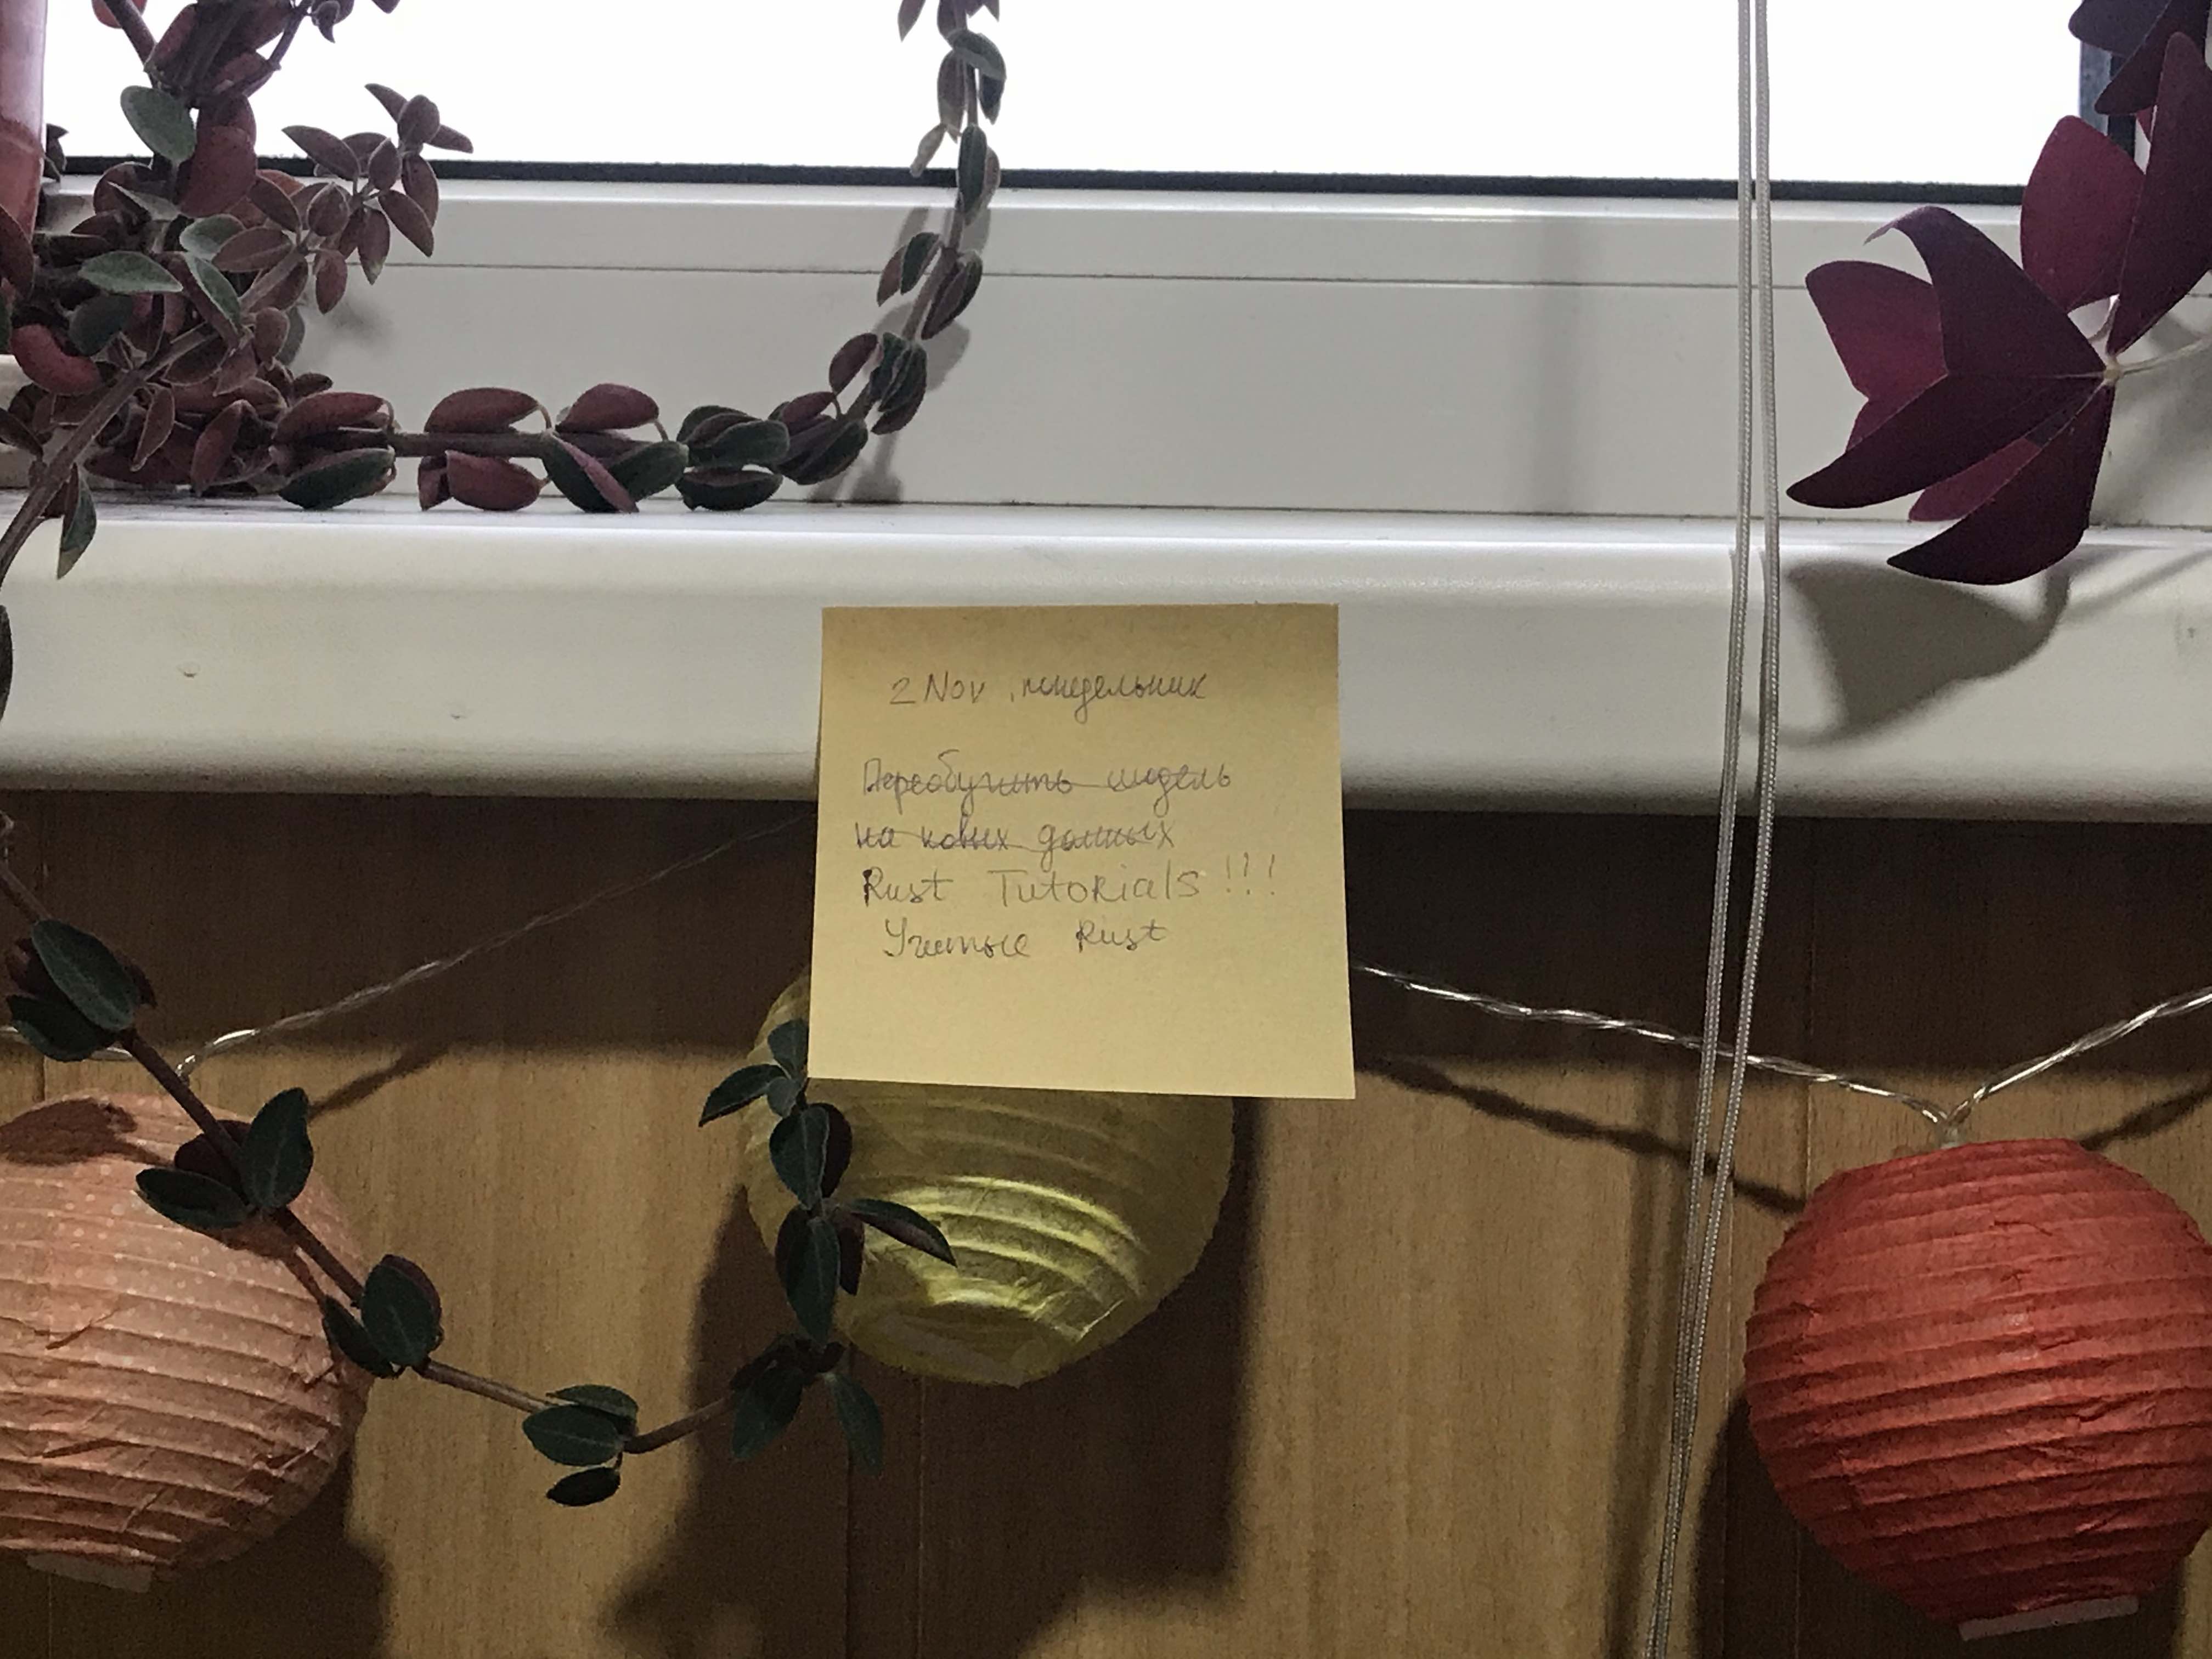 2 Nov, понедельник
Переобучить модель
на новых данных
Rust Tutorials!!!
Учитьсе Rust